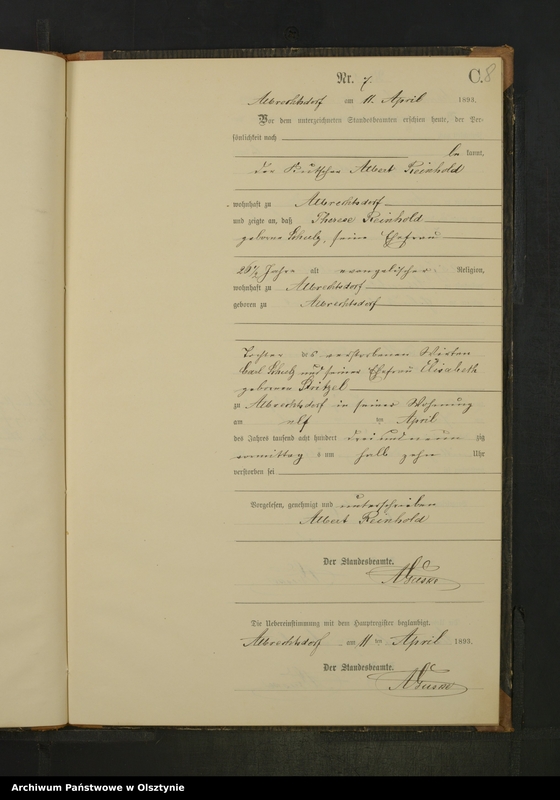 Nr. 7.
C.
8
Albrechtsdorf am 11. April 1893.
Vor dem unterzeichneten Standesbeamten erschien heute, der Per-
sönlichkeit nach
be kannt,
der Albert Reinhold
wohnhaft zu Albrechtsdorf
und zeigte an, daß Therese Reinhold
geborne Schulz, seine Ehefrau
26 ½ Jahre alt evangelischer Religion,
wohnhaft zu Albrechtsdorf
geboren zu Albrechtsdorf
Tochter des verstorbenen Wirten
Carl Schulz und seiner Ehefrau Elisabeth
geborenen
zu Albrechtsdorf in seiner Wohnung
am elf ten April
des Jahres tausend acht hundert drei und neun zig
vormittag s um halb zehn Uhr
verstorben sei
Vorgelesen, genehmigt und unterschrieben
Albert Reinhold
Der Standesbeamte.
Die Uebereinstimmung mit dem Hauptregister beglaubigt.
Albrechtsdorf am 11 ten April 1893.
Der Standesbeamte.
Archiwum Państwowe w Olsztynie